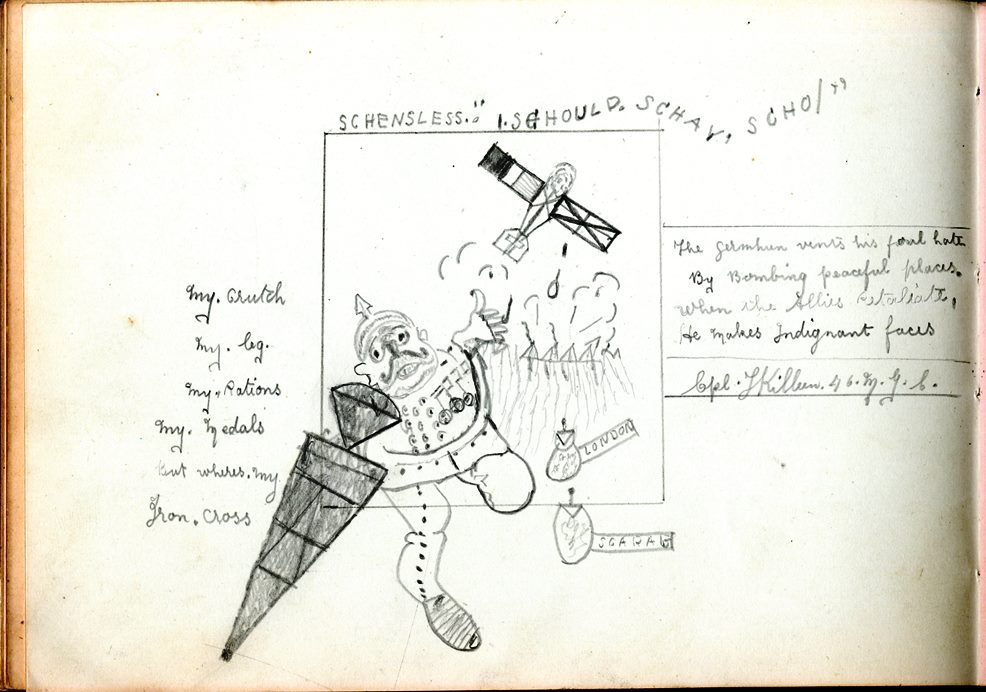 SCHENSLESS." I.SCHOULD. SCHAY, SCHO!"
My. Crutch
My. leg.
My. Rations
My. Medals
But wheres. my
Iron. Cross
The Germhun vents his foul hate
By Bombing peaceful places.
When the Allies retaliate,
He makes Indignant faces
Cpl. J Killeen. 46. M. G. C.
LONDON